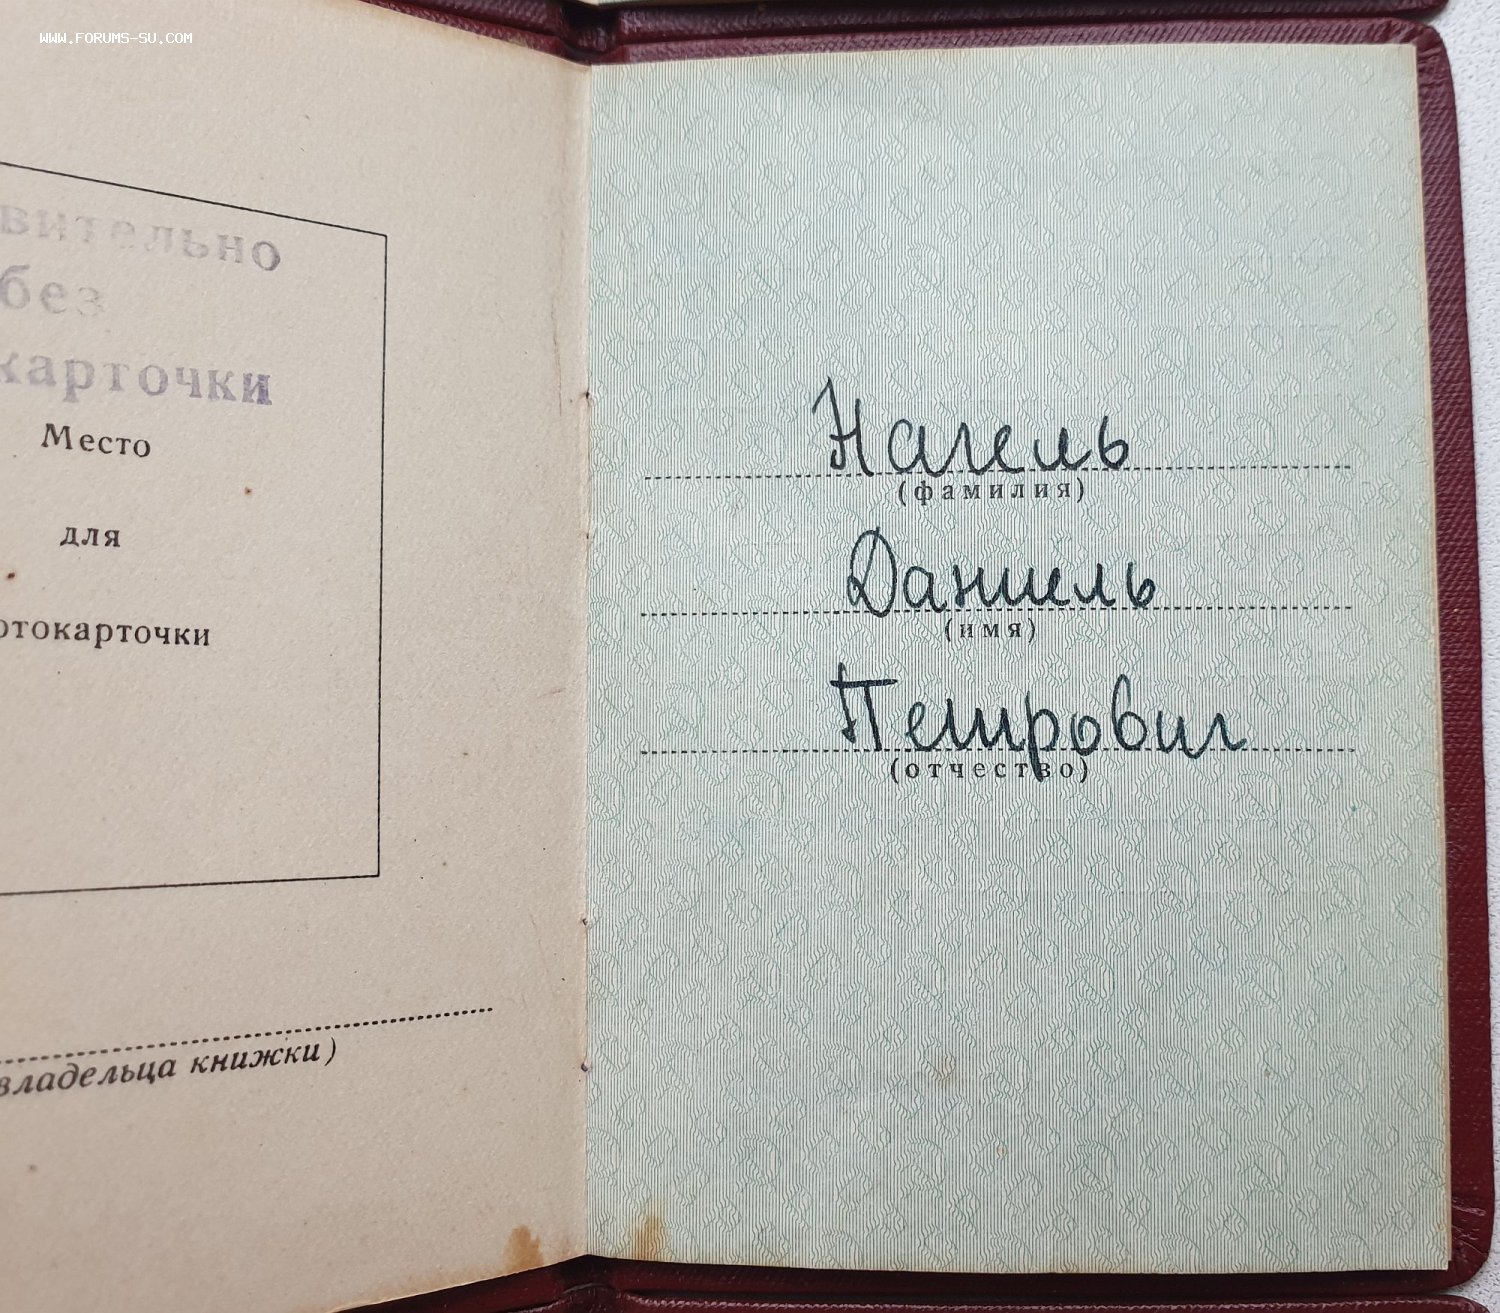 WWW.FORUMS-SU.COM
вительно
без
карточки
Место
для
отокарточки
владельца книжки)
Нагель
(фамилия)
Даниель
(имя)
Петрович
(отчество)